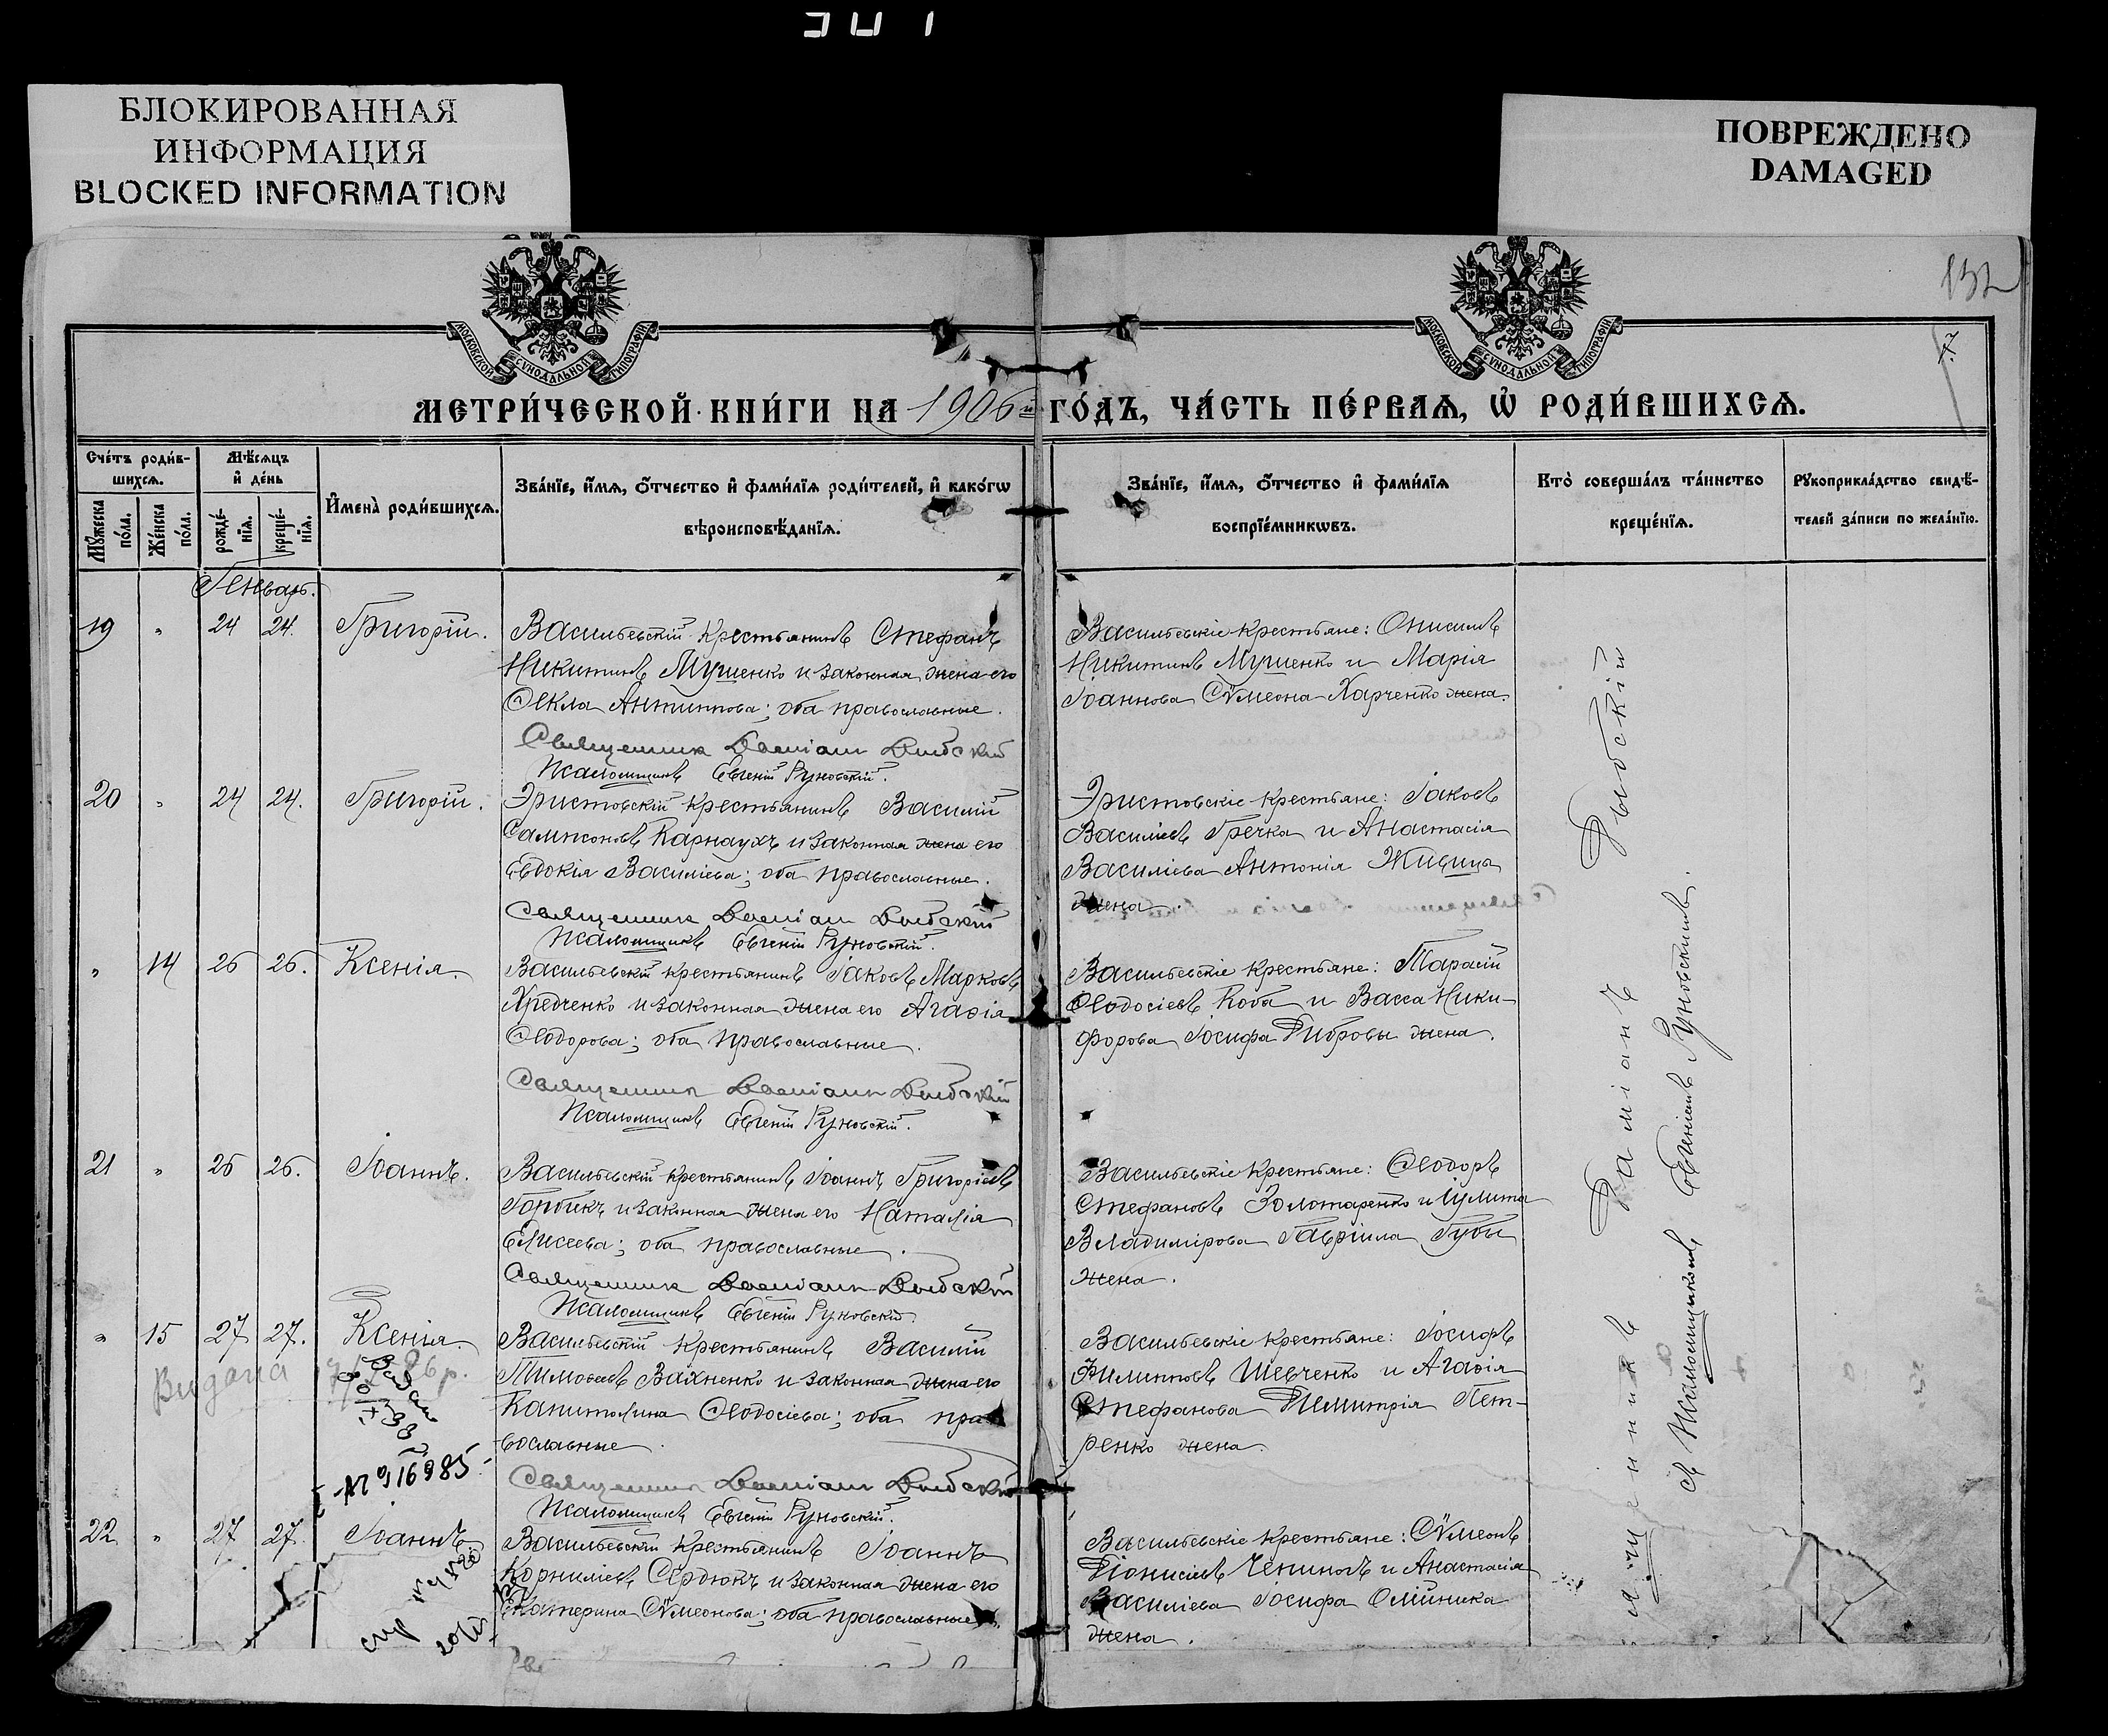 БЛОКИРОВАННАЯ
ИНФОРМАЦИЯ
BLOCKED INFORMATION
ПОВРЕЖДЕНО
DAMAGED
МОСКОВСКОЙ СѴНОДАЛЬНОЙ ТИПОГРАФІИ
МОСКОВСКОЙ СѴНОДАЛЬНОЙ ТИПОГРАФІИ
132
7.
МЕТРИ́ЧЕСКОЙ КНИ́ГИ НА 1906й ГО́ДЪ, ЧА́СТЬ ПЕ́РВАѦ, Ѡ҆ РОДИ́ВШИХСѦ.
Сче́тъ роди́в-
шихсѧ.
Мꙋ́жеска по́ла.
Же́нска по́ла.
Мѣ́сѧцъ
и҆ де́нь
рожде́-
нїѧ.
креще́-
нїѧ.
И҆мена̀ роди́вшихсѧ.
Зва́нїе, и҆́мѧ, ѻ҆́тчество и҆ фами́лїѧ роди́телей, и҆ како́гѡ
вѣроисповѣ́данїѧ.
Зва́нїе, и҆́мѧ, ѻ҆́тчество и҆ фами́лїѧ
воспрїе́мникѡвъ.
Кто̀ соверша́лъ та́инство
креще́нїѧ.
Рꙋкоприкла́дство свидѣ́-
телей за́писи по жела́нїю.
Генварь.
19 " 24 24. Григорій.
Васильевскій крестьянинъ Стефанъ
Никитинъ Мушенко и законная жена его
Ѳекла Антипова; оба православные.
Священник Дамиан Дыбский
Псаломщикъ Евгеній Руновскій.
Васильевскіе крестьяне: Онисимъ
Никитинъ Мушенко и Марія
Іоаннова Сѵмеона Харченко жена.
20 " 24 24. Григорій.
Эристовскій крестьянинъ Василій
Сампсоновъ Карнаухъ и законная жена его
Евдокія Василіева; оба православные.
Священник Дамиан Дыбский
Псаломщикъ Евгеній Руновскій.
Эристовскіе крестьяне: Іаковъ
Василіевъ Гречка и Анастасія
Василіева Антонія Живица
жена.
" 14 26 26. Ксенія.
Васильевскій крестьянинъ Іаковъ Марковъ
Хредченко и законная жена его Агаѳія
Ѳеодорова; оба православные.
Священник Дамиан Дыбский
Псаломщикъ Евгеній Руновскій.
Васильевскіе крестьяне: Тарасій
Ѳеодосіевъ Коба и Васса Ники-
форова Іосифа Дибровы жена.
21 " 26 26. Іоаннъ.
Васильевскій крестьянинъ Іоаннъ Григоріевъ
Горбикъ и законная жена его Наталія
Елисеева; оба православные.
Священник Дамиан Дыбский
Псаломщикъ Евгеній Руновскій
Васильевскіе крестьяне: Ѳеодоръ
Стефановъ Золотаренко и Іулита
Владимірова Гавріила Губы
жена.
" 15 27 27. Ксенія.
Видана
№ 116985
Васильевскій крестьянинъ Василій
Тимоѳеевъ Вахненко и законная жена его
Капитолина Ѳеодосіева; оба пра-
вославные.
Священник Дамиан Дыбский
Псаломщикъ Евгеній Руновскій.
Васильевскіе крестьяне: Іосифъ
Филипповъ Шевченко и Агаѳія
Стефанова Димитрія Пет-
ренко жена.
22 " 27 27. Іоаннъ
Васильевскій крестьянинъ Іоаннъ
Корниліевъ Сердюкъ и законная жена его
Екатерина Сѵмеонова; оба православные.
Васильевскіе крестьяне: Сѵмеонъ
Діонисіевъ Чепиногъ и Анастасія
Василіева Іосифа Олійника
жена.
Священникъ Даміанъ Дыбскій
съ Псаломщикомъ Евгеніемъ Руновскимъ.